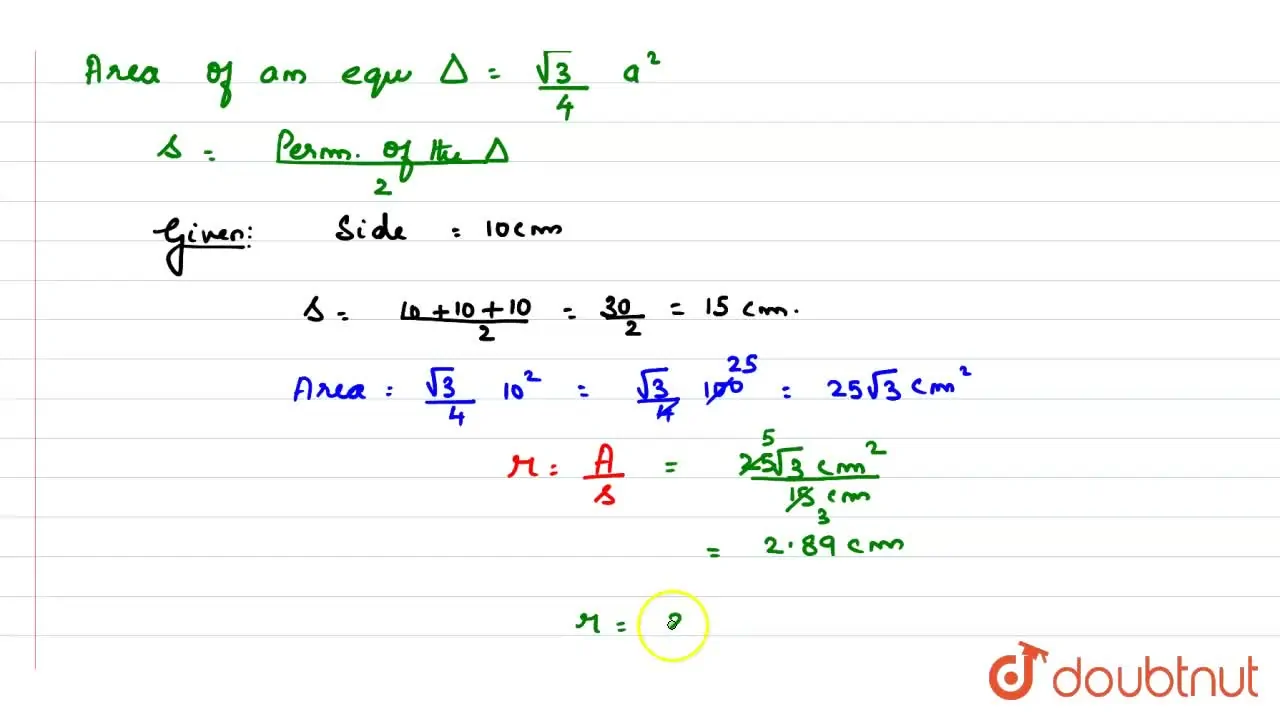 Area of an equ Δ = √3/4 a²
s = Perm. of the Δ/2
Given: Side = 10cm
s = 10+10+10/2 = 30/2 = 15 cm.
Area = √3/4 10² = √3/4 100 25 = 25√3 cm²
r = A/s = 25 5 √3 cm²/15 3 cm
= 2.89 cm
r =
doubtnut